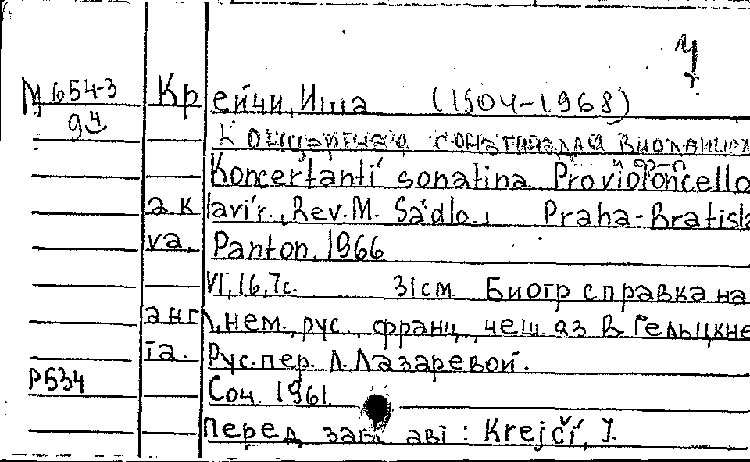 Ч
М 654-3
94
Крейчи, Иша (1904-1968)
Концертная сонатина для виолончел
и ф-п
Koncertantí sonatina Pro violoncello
a klavír., Rev. M. Sádlo., Praha-Bratisla
va, Panton, 1966
VI, 16, 7с. 31см Биогр справка на
англ, нем, рус, франц, чеш яз В Гельцкне
та. Рус. пер. Л. Лазаревой.
Р634
Соч. 1961
Перед загл авт: Krejčí, I.